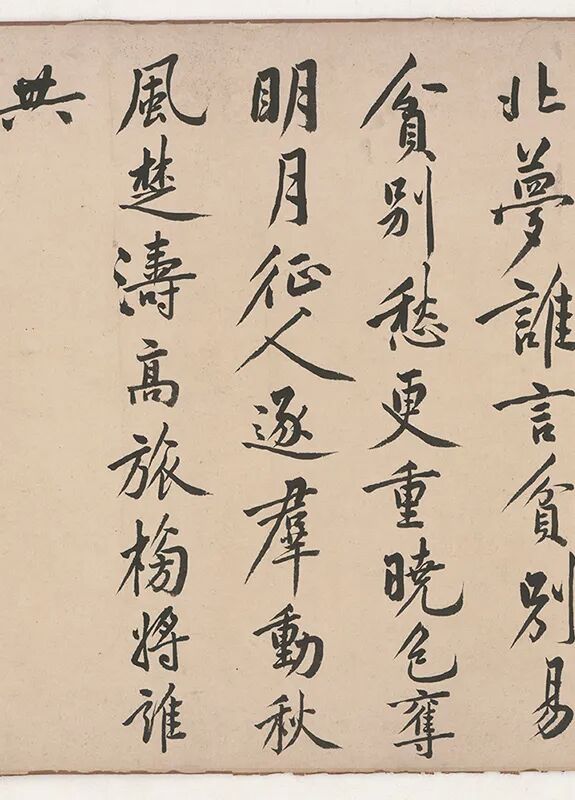 北夢誰言貧別易
貧別愁更重曉色奪
明月征人逐羣動秋
風楚濤高旅榜將誰
共